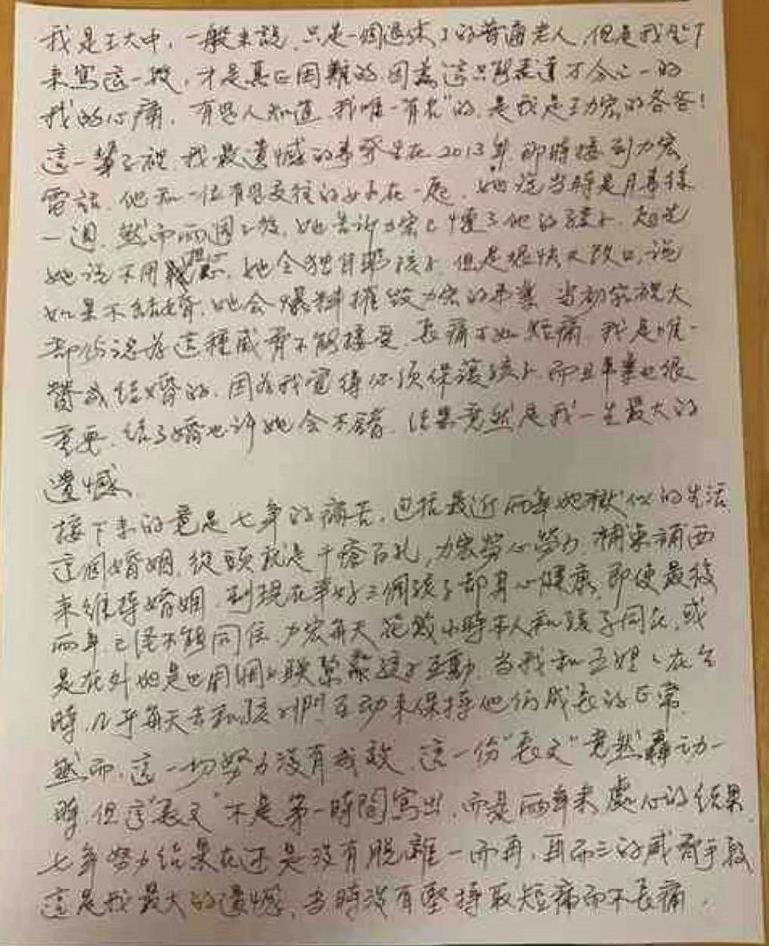 我是王大中，一般來說，只是一個退休了的普通老人，但是我坐下
來寫這一段，才是真正困難的，因為這只能表達万分之一的
我的心痛，有些人知道，我唯一"有名"的，是我是王力宏的爸爸！
這一輩子裡，我最遺憾的事発生在2013年，那時接到力宏
電話，他和一位有過交往的女子在一起，她說當時是月事後
一週，然而兩週之後，她告訴力宏已懷了他的孩子，起先
她說不用担心，她会独自帶孩子，但是很快又改口，說
如果不結婚，她会爆料摧毀力宏的事業，當初家裡大
都认為這種威脅不能接受，長痛不如短痛，我是唯一
贊成結婚的，因為我覚得必須保護孩子，而且事業也很
重要，結了婚也許她会不錯，结果竟然是我一生最大的
遺憾。
接下來的竟是七年的痛苦，包括最近兩年地獄似的生活，
這個婚姻，從頭就是千瘡百孔，力宏勞心勞力，補東補西
來維持婚姻，到現在幸好三個孩子都身心健康，即使最後
兩年，已経不能同住，力宏每天花數小時本人和孩子同在，或
是在外地是也用個人联繫孩子互動，當我和王媽媽在台
時，几乎每天去和孩子們互动來保持他们成長的正常，
然而，這一切努力没有成效，這一份"長文"竟然轟动一
時，但這"長文"不是第一時間寫出，而是兩年來處心的结果，
七年努力结果在还是沒有脫離一而再，再而三的威脅手段
這是我最大的遺憾，当時沒有堅持取短痛而不長痛，